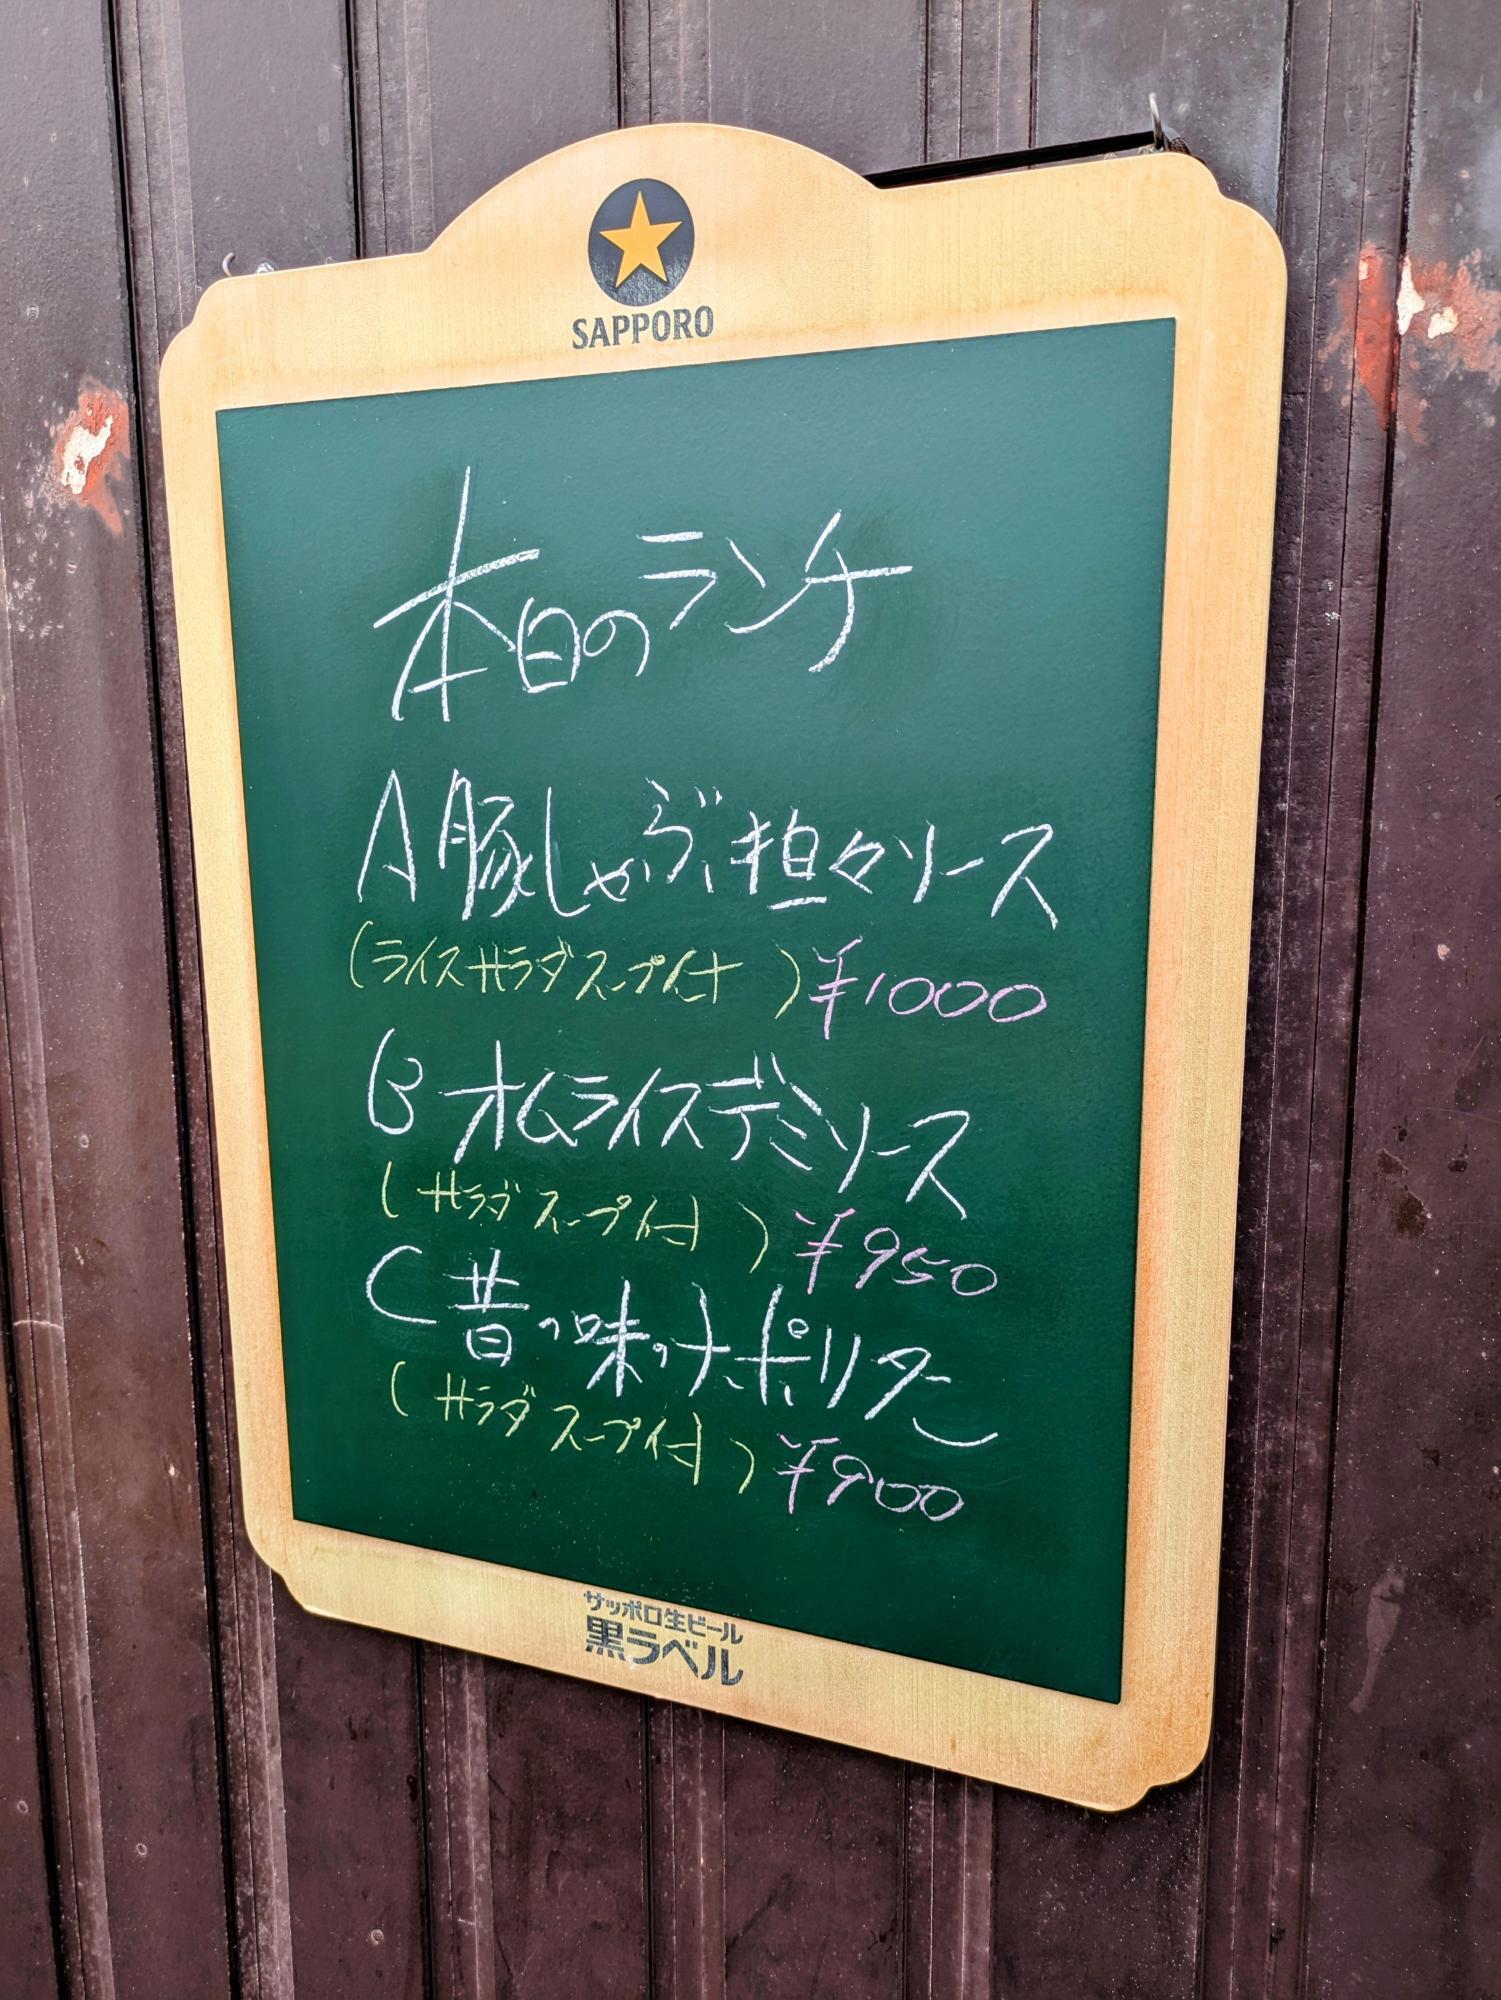 SAPPORO
本日のランチ
A 豚しゃぶ担々ソース
(ライスサラダスープ付) ¥1000
B オムライスデミソース
(サラダスープ付) ¥950
C 昔の味のナポリタン
(サラダスープ付) ¥900
サッポロ生ビール
黒ラベル